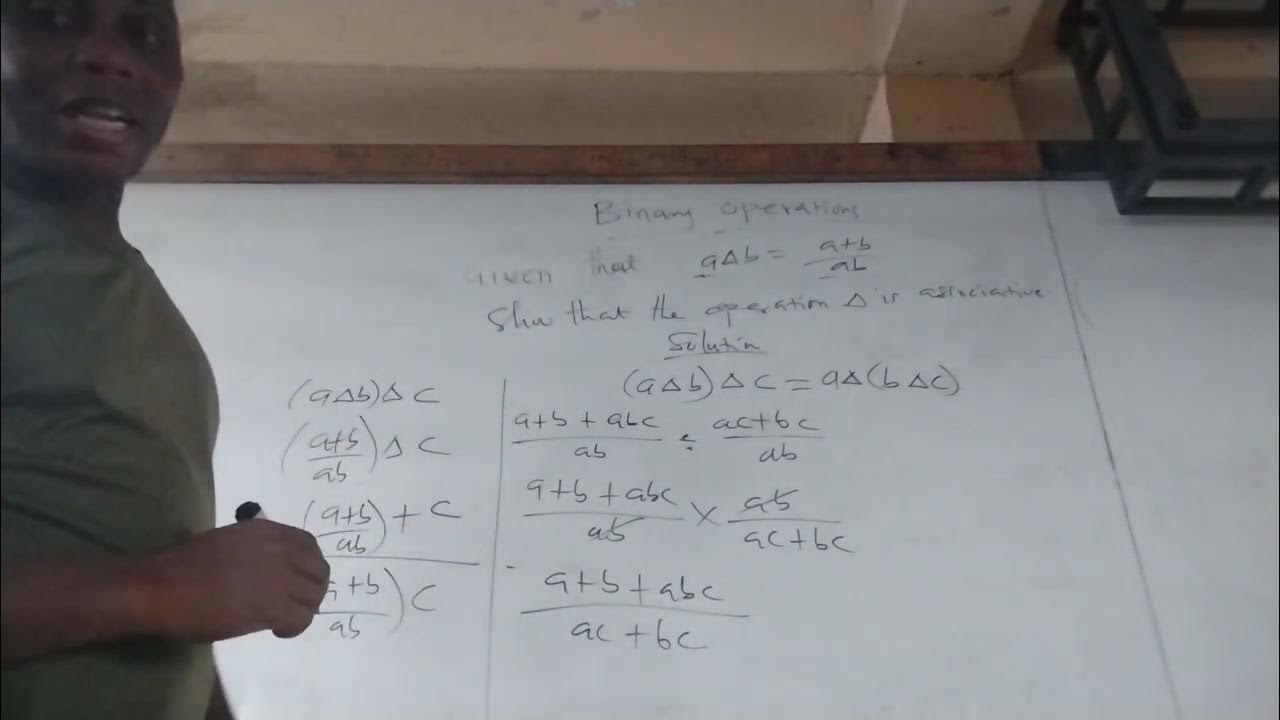 Binary operations
Given that a∆b = a+b/ab
Show that the operation ∆ is associative
Solution
(a∆b)∆c = a∆(b∆c)
(a∆b)∆c
(a+b/ab)∆c
(a+b/ab)+c
(a+b/ab)c
a+b+abc/ab ÷ ac+bc/ab
a+b+abc/ab × ab/ac+bc
a+b+abc/ac+bc